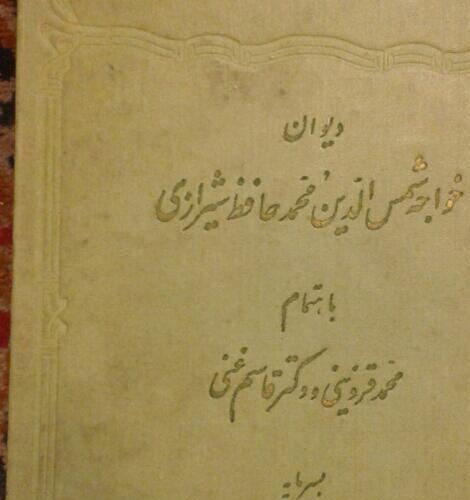 دیوان
خواجه شمس الدین محمد حافظ شیرازی
باهتمام
محمد قزوینی و دکتر قاسم غنی
بسرمایه